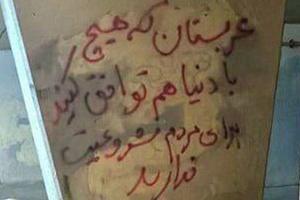 عربستان که هیچ
با دنیا هم توافق کنید
برای مردم مشروعیت
ندارید